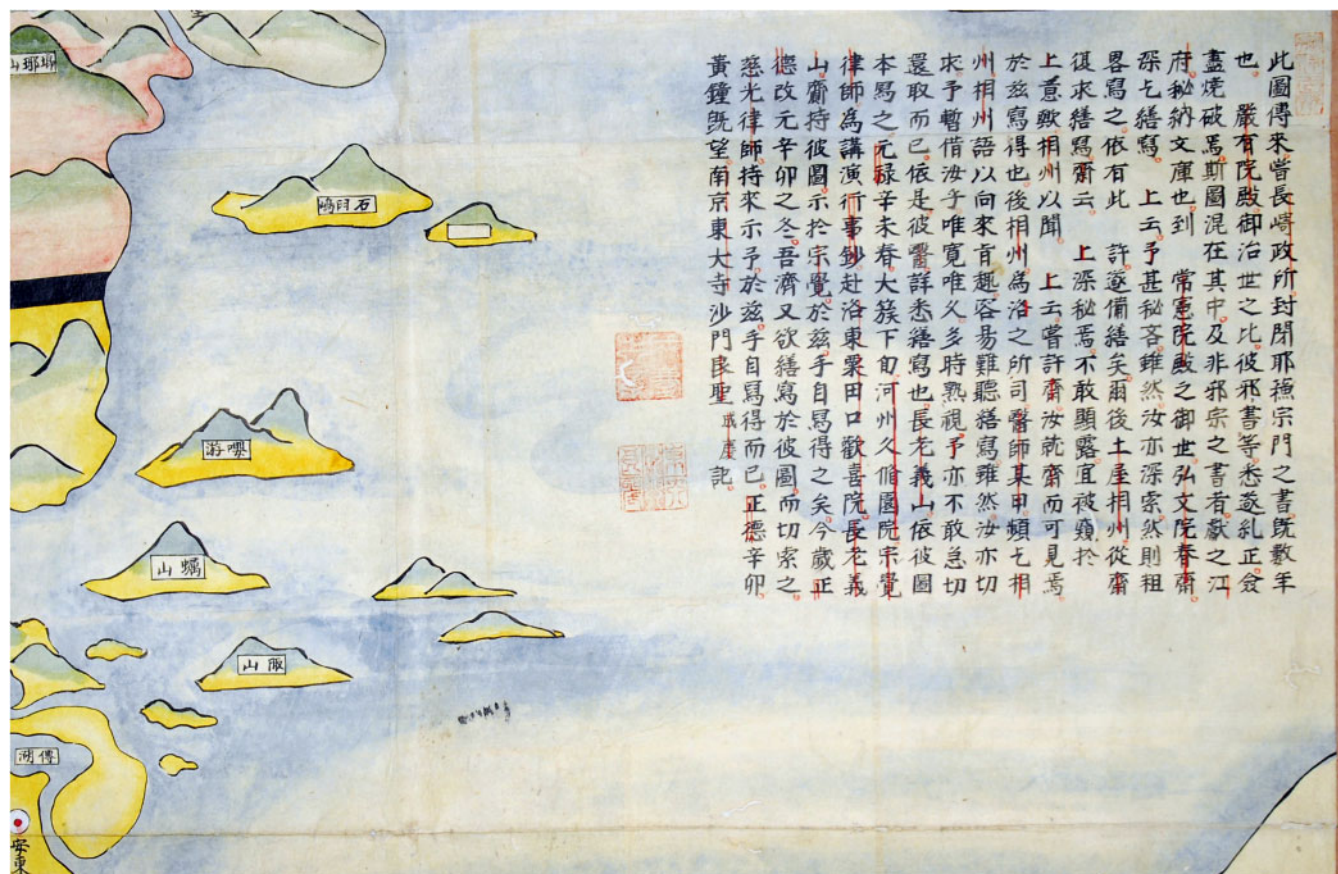 此圖傳來嘗長崎政所封閉耶穌宗門之書既數年
也 嚴有院殿御治世之比彼邪書等悉遂糺正僉
盡燒破焉斯圖混在其中及非邪宗之書者獻之江
府秘納文庫也到 常憲院殿之御世弘文院春齋
深乞繕寫 上云予甚秘吝雖然汝亦深索然則粗
畧寫之依有此 許遂備繕矣爾後土屋相州從齋
復求繕寫齋云 上深秘焉不敢顯露宜被窺於
上意歟相州以聞 上云嘗許齋汝就齋而可見焉
於玆寫得也後相州為洛之所司醫師某甲頻乞相
州相州語以向來旨趣容易難聽繕寫雖然汝亦切
求予暫借汝乎唯寬唯久多時熟視予亦不敢急切
還取而已依是彼醫詳悉繕寫也長老義山依彼圖
本寫之元祿辛未春大簇下旬河州久脩園院宗覺
律師為講演行事鈔赴洛東粟田口歡喜院長老義
山齋持彼圖示於宗覺於玆手自寫得之矣今歲正
德改元辛卯之冬吾濟又欲繕寫於彼圖而切索之
慈光律師持來示予於玆手自寫得而已正德辛卯
黃鐘既望南京東大寺沙門良聖成慶記
琅琊山
石臼島
嚶游
山
山
安東